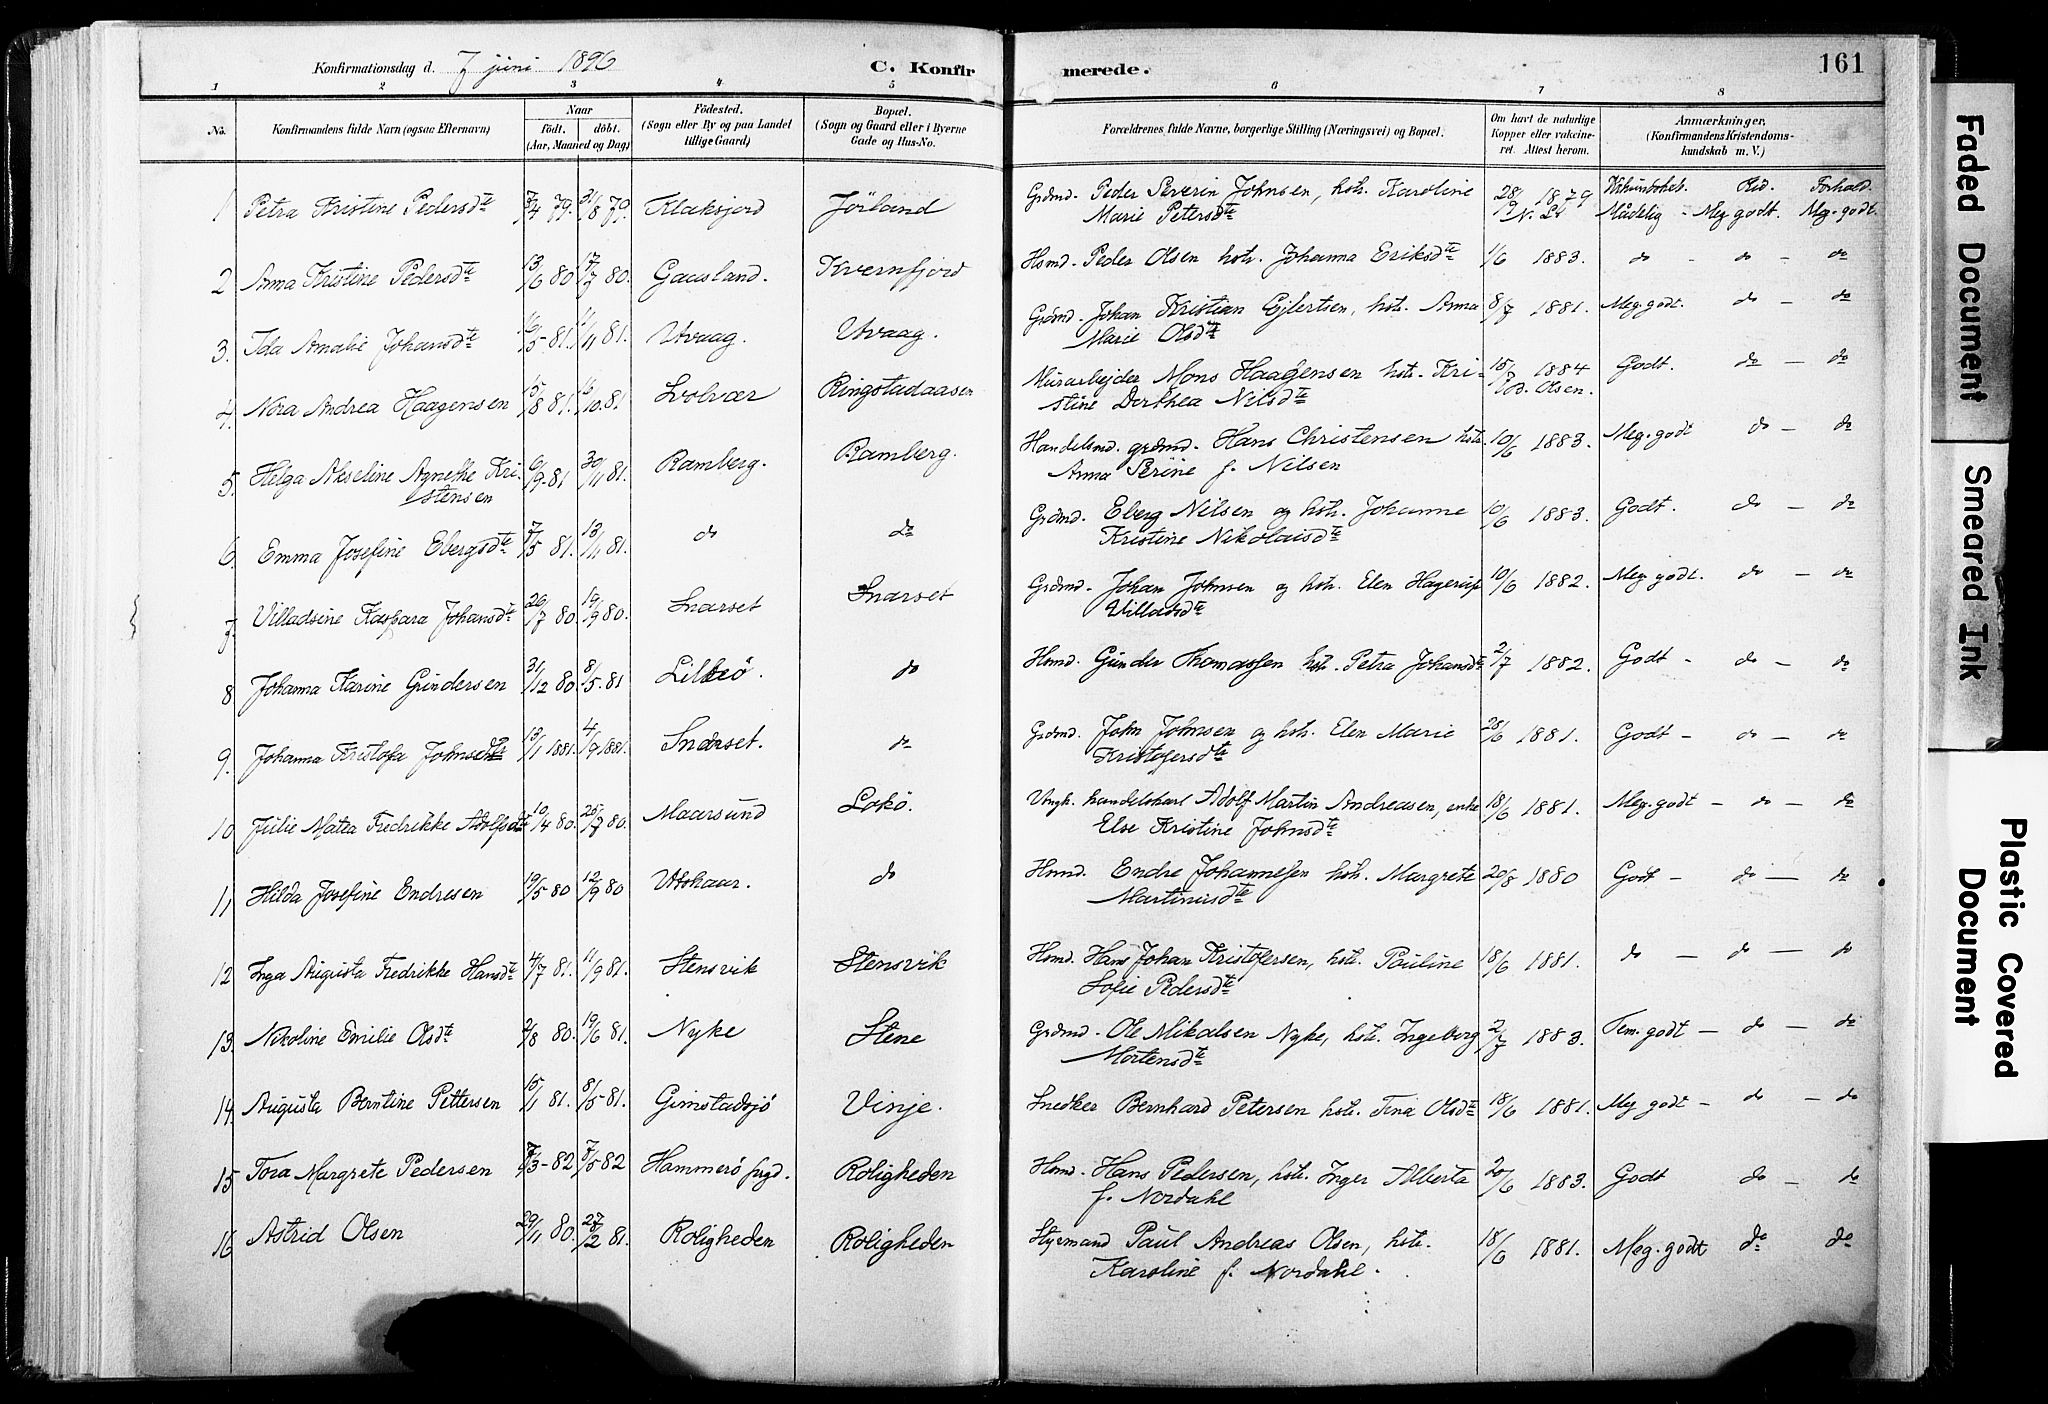 Konfirmationsdag d. 7 juni 1896 C. Konfirmerede. 161
1 2 3 4 5 6 7 8
No. Konfirmandens fulde Navn (ogsaa Efternavn) Naar født. døbt. (Aar, Maaned og Dag) Födested. (Sogn eller By og paa Landet tillige Gaard) Bopæl. (Sogn og Gaard eller i Byerne Gade og Hus-No. Forældrenes fulde Navne, borgerlige Stilling (Næringsvei) og Bopæl. Om havt de naturlige Kopper eller vakcineret. Attest herom. Anmærkninger, (Konfirmandens Kristendomskundskab m. V.)
1 Petra Kristine Pedersdte 79. 31/8 79. Klaksjord Jørland Grdmd. Peder Severin Johnsen, hstr. Karoline 28/9 1879 Flid. Forhold.
Marie Petersdte Mådelig - Meg godt. Meg. godt.
2 Anna Kristine Pedersdte 13/6 80 17/7 80. Gaasland. Kvernfjord Hsmd. Peder Olsen hstr. Johanna Eriksdte 1/6 1883. do - do - do
3. Ida Amalie Johansdte 81. 81. Utvaag. Utvaag. Grdmd. Johan Kristian Ejlertsen, hstr. Anna 8/7 1881. Meg. godt. do - do
Marie Olsdte
4. Nora Andrea Haagensen 15/8 81. 16/10. 81 Svolvær Ringstadaasen Murarbejder Mons Haagensen hstr. Kri- 1884 Godt. do - do
stine Dorthea Nilsdte Olsen.
5. Helga Akseline Agnethe Kri- 6/9. 81 30/11 81. Ramberg. Ramberg. Handelsmd. grdmd. Hans Christensen hstr. 10/6 1883. Meg. godt do - do
stensen Anna Serine f. Nilsen
6. Emma Josefine Ebergsdte 7/5 81. 13/11 81. do do Grdmd. Eberg Nilsen og hstr. Johanne 10/6 1883. Godt. do - do
Kristine Nikolaisdte
7. Villadsine Kaspara Johansdte 26/7 80 19/9 80. Snarset Snarset Grdmd. Johan Johnsen og hstr. Elen Hagerup 10/6 1882. Meg. godt. do - do
Villadsdte
8 Johanna Karine Gundersen 31/12 80 8/5. 81 Lilleø. do Hsmd. Gunder Thomassen hstr. Petra Johansdte 2/7 1882. Godt - do - do
9. Johanna Kristofa Johnsdte 13/1 1881. 4/9 1881. Snarset. do Grdmd. John Johnsen og hstr. Elen Marie 28/6 1881. Godt - do - do
Kristofersdte
10 Julie Matea Fredrikke Adolfsdte 10/4 80. 25/7 80. Maarsund Lokø. Ungk. handelskarl Adolf Martin Andreasen, enke 18/6 1881. Meg. godt - do - do
Else Kristine Johnsdte
11 Hilda Josefine Endresen 19/5 80 12/9 80 Utskaar. do Hsmd. Endre Johannesen hstr. Margrete 20/8 1880 Godt - do - do
Martinusdte
12 Inga Augusta Fredrikke Hansdte 4/7 81. 11/9 81. Stensvik Stensvik Hsmd. Hans Johan Kristofersen, hstr. Pauline 18/6 1881. do - do - do
Sofie Pedersdte
13. Nikoline Emilie Olsdte 2/8 80. 19/6 81. Nyke Stene Grdmd. Ole Mikalsen Nyke, hstr. Ingeborg 2/7 1883. Tem. godt - do - do
Mortensdte
14. Augusta Berntine Pettersen 15/1 81. 8/5. 81. Gimstadsjø Vinje. Snedker Bernhard Petersen hstr. Tina Olsdte 18/6 1881. Meg godt - do - do
15 Tora Margrete Pedersen 82 82 Hammerø Roligheden Hsmd. Hans Pedersen, hstr. Inger Alberta 20/6 1883. Godt do - do
f. Nordahl
16 Astrid Olsen 29/11 80. 27/2 81. Roligheden Roligheden Styrmand Paul Andreas Olsen, hstr. 18/6 1881. Meg. godt do do
Karoline f. Nordahl.
Faded Document
Smeared Ink
Plastic Covered Document